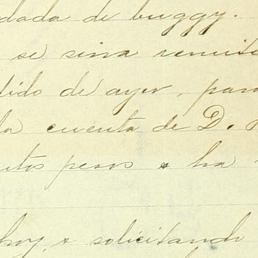 dada de buggy.
se sirva remitir
dido de ayer, para
la cuenta de D.
ntos pesos & ha
hoy, & solicitando